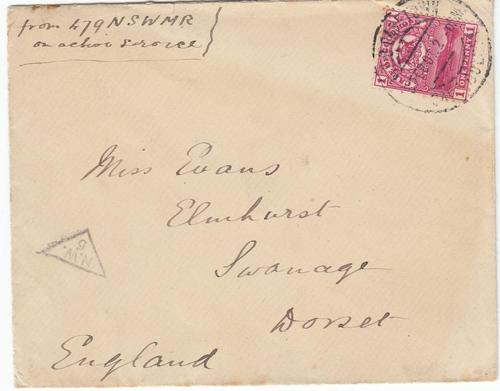 from 479 NSWMR
on active service
1 ONE PENNY 1
Miss Evans
Elmhurst
Swanage
Dorset
England
N.W.
6